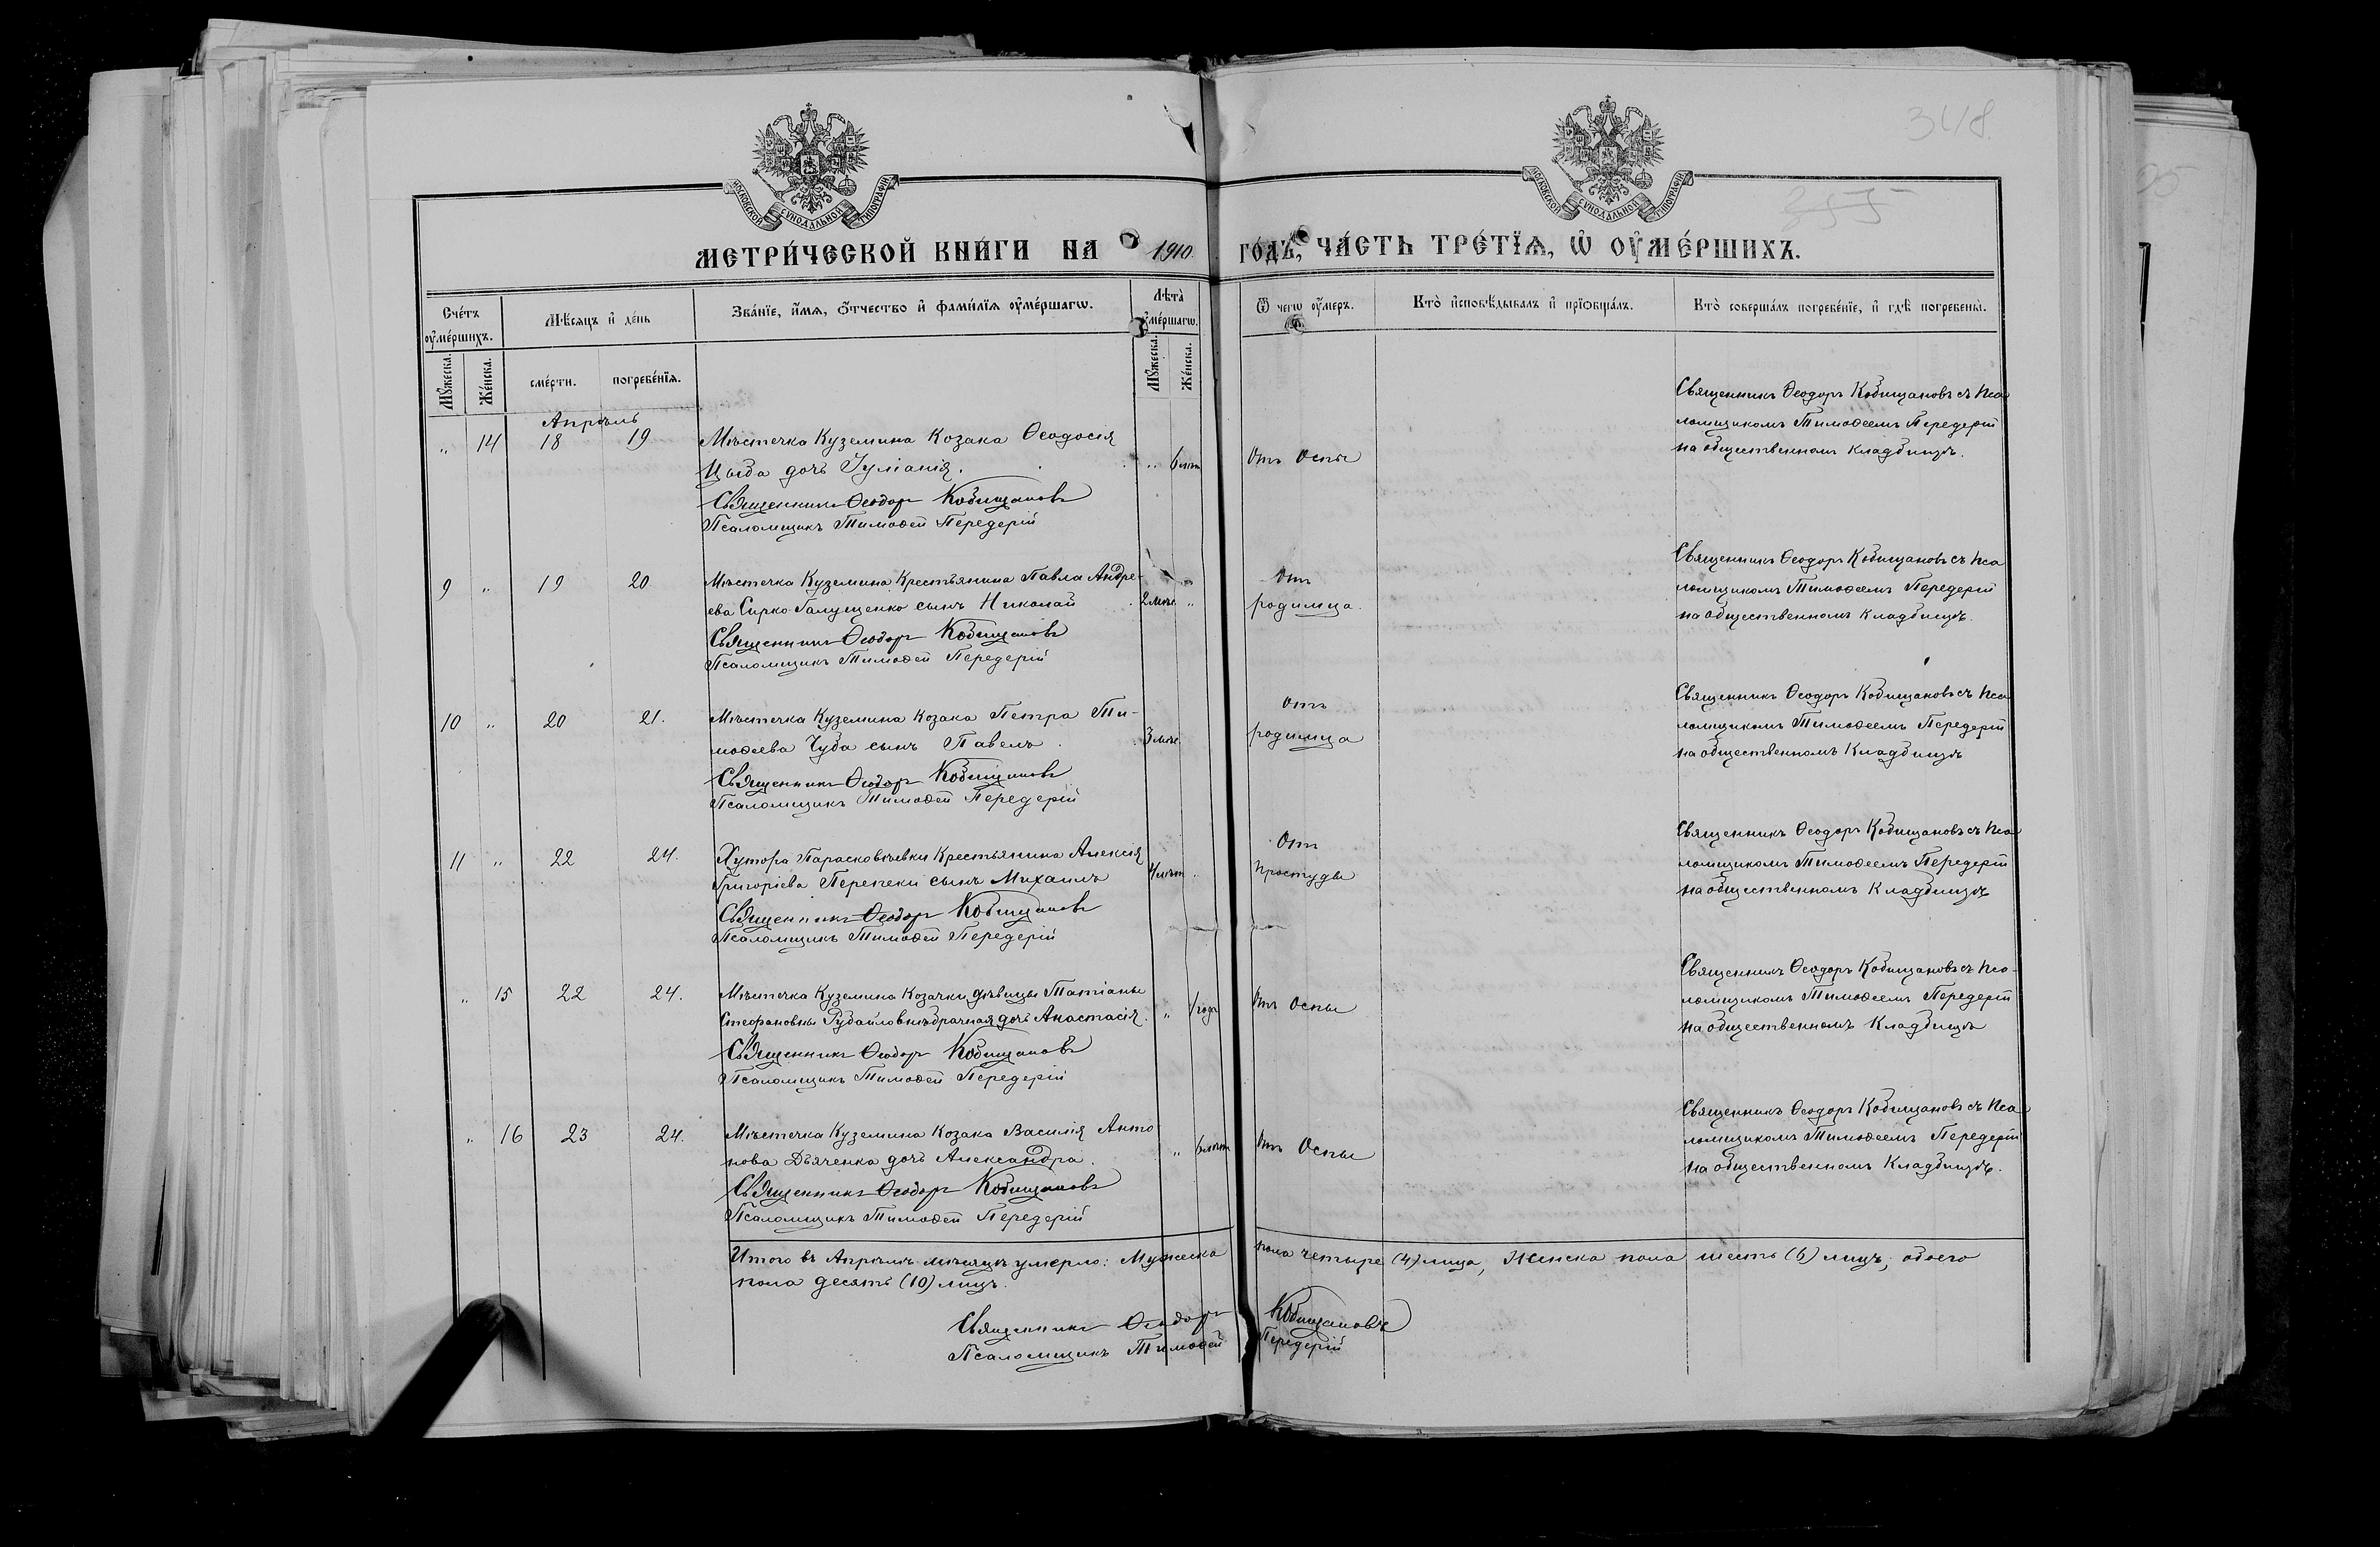 348
355
МОСКОВСКОЙ СѴНОДАЛЬНОЙ ТИПОГРАФІИ
МОСКОВСКОЙ СѴНОДАЛЬНОЙ ТИПОГРАФІИ
МЕТРИ́ЧЕСКОЙ КНИ́ГИ НА 1910. ГО́ДЪ, ЧА́СТЬ ТРЕ́ТЇѦ, Ѡ҆ ОУ҆МЕ́РШИХЪ.
Сче́тъ оу҆ме́ршихъ.
Мꙋ́жеска.
Же́нска.
Мѣ́сѧцъ и҆ де́нь
сме́рти.
погребе́нїѧ.
Зва́нїе, и҆́мѧ, ѻ҆́тчество и҆ фами́лїѧ оу҆ме́ршагѡ.
Лѣта̀ оу҆ме́ршагѡ.
Мꙋ́жеска.
Же́нска.
Ѿ чегѡ̀ оу҆́меръ.
Кто̀ и҆сповѣ́дывалъ и҆ прїѻбща́лъ.
Кто̀ соверша́лъ погребе́нїе, и҆ гдѣ̀ погребены̀.
Апрѣль
" 14 18 19 Мѣстечка Куземина Козака Ѳеодосія
Цыба дочь Іуліанія. " 6 лѣт Отъ Оспы
Священникъ Ѳеодоръ Кобищановъ
Псаломщикъ Тимоѳей Передерій
Священникъ Ѳеодоръ Кобищановъ съ Пса
ломщикомъ Тимоѳеемъ Передерій
на общественномъ кладбищѣ.
9 " 19 20 Мѣстечка Куземина Крестьянина Павла Андре-
ева Сирко-Галущенко сынъ Николай 2 мѣс. " Отъ
родимца.
Священникъ Ѳеодоръ Кобищановъ
Псаломщикъ Тимоѳей Передерій
Священникъ Ѳеодоръ Кобищановъ съ Пса
ломщикомъ Тимоѳеемъ Передерій
на общественномъ кладбищѣ.
10 " 20 21. Мѣстечка Куземина Козака Петра Ти-
моѳеева Чуба сынъ Павелъ. 3 мѣс. Отъ
родимца
Священникъ Ѳеодоръ Кобищановъ
Псаломщикъ Тимоѳей Передерій
Священникъ Ѳеодоръ Кобищановъ съ Пса
ломщикомъ Тимоѳеемъ Передерій
на общественномъ Кладбищѣ
11 " 22 24. Хутора Парасковіевки Крестьянина Алексія
Григоріева Перепеки сынъ Михаилъ 4 лѣт Отъ
простуды
Священникъ Ѳеодоръ Кобищановъ
Псаломщикъ Тимоѳей Передерій
Священникъ Ѳеодоръ Кобищановъ съ Пса
ломщикомъ Тимоѳеемъ Передерій
на общественномъ Кладбищѣ
" 15 22 24. Мѣстечка Куземина Козачки дѣвицы Татіаны
Стефановны Рудайло внѣбрачная дочь Анастасія. " 1 годъ Отъ Оспы
Священникъ Ѳеодоръ Кобищановъ
Псаломщикъ Тимоѳей Передерій
Священникъ Ѳеодоръ Кобищановъ съ Пса-
ломщикомъ Тимоѳеемъ Передерій
на общественномъ Кладбищѣ
" 16 23 24. Мѣстечка Куземина Козака Василія Анто
нова Дьяченка дочь Александра. " 6 лѣт Отъ Оспы
Священникъ Ѳеодоръ Кобищановъ
Псаломщикъ Тимоѳей Передерій
Священникъ Ѳеодоръ Кобищановъ съ Пса
ломщикомъ Тимоѳеемъ Передерій
на общественномъ Кладбищѣ.
Итого въ Апрѣлѣ мѣсяцѣ умерло: Мужеска пола четыре (4) лица, Женска пола шесть (6) лицъ, обоего
пола десять (10) лицъ.
Священникъ Ѳеодоръ Кобищановъ
Псаломщикъ Тимоѳей Передерій